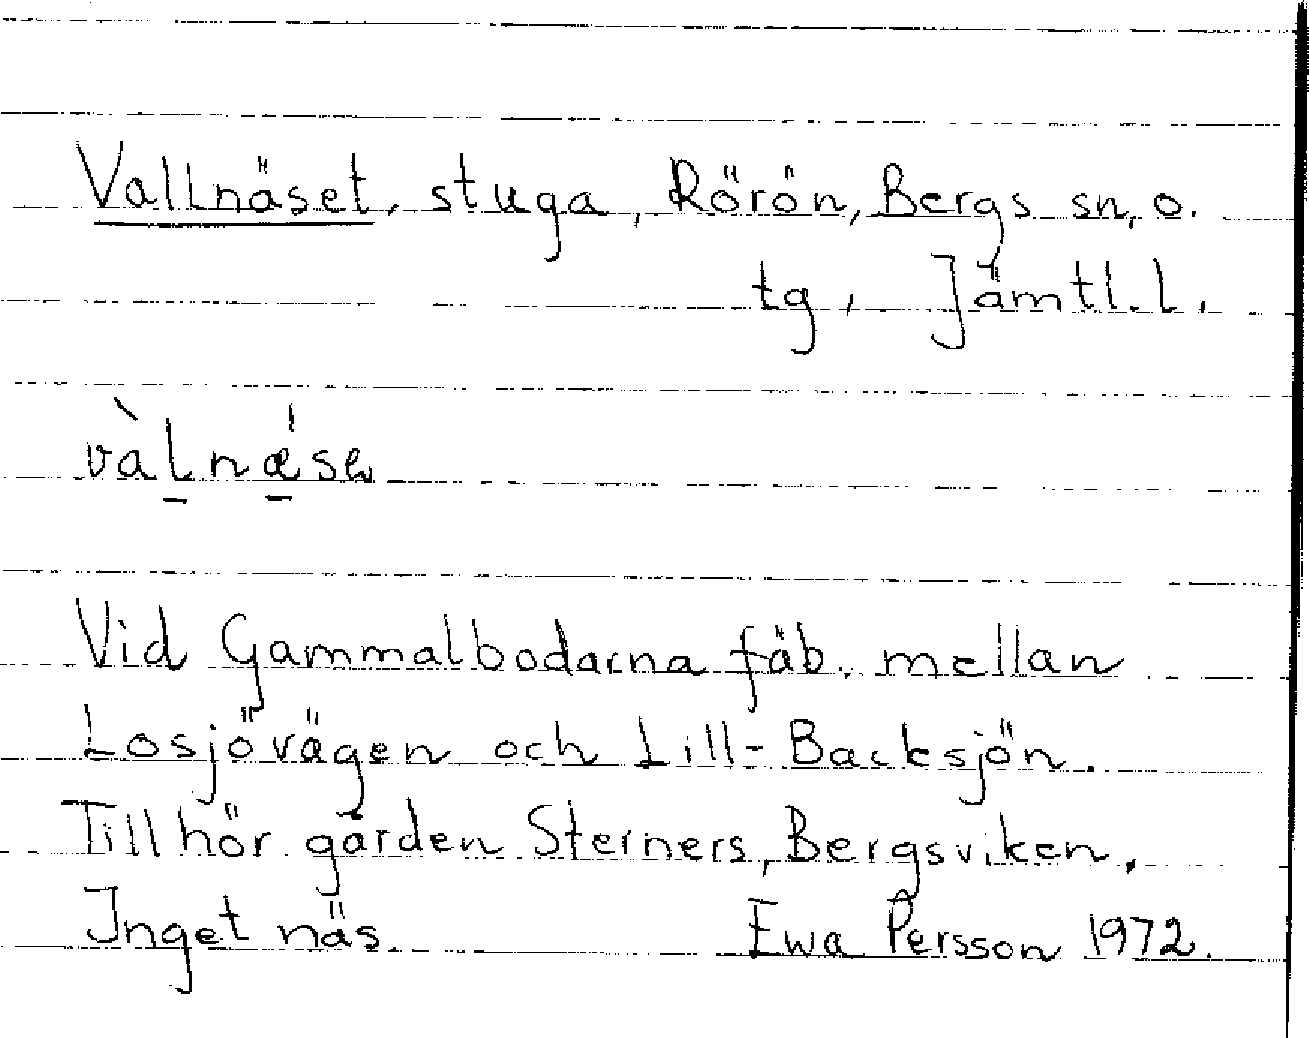 Vallnäset, stuga, Rörön, Bergs sn, o.
tg, Jämtl. l.
Vid Gammalbodarna fäb. mellan
Losjövägen och Lill-Backsjön.
Tillhör gården Sterners, Bergsviken.
Inget näs. Ewa Persson 1972.